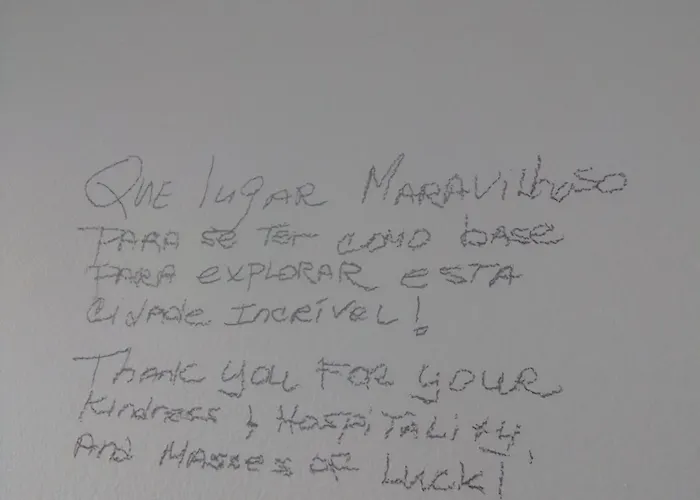 Que lugar Maravilhoso
para se ter como base
para explorar esta
cidade incrível!
Thank you for your
Kindness & Hospitality,
And Masses of Luck!